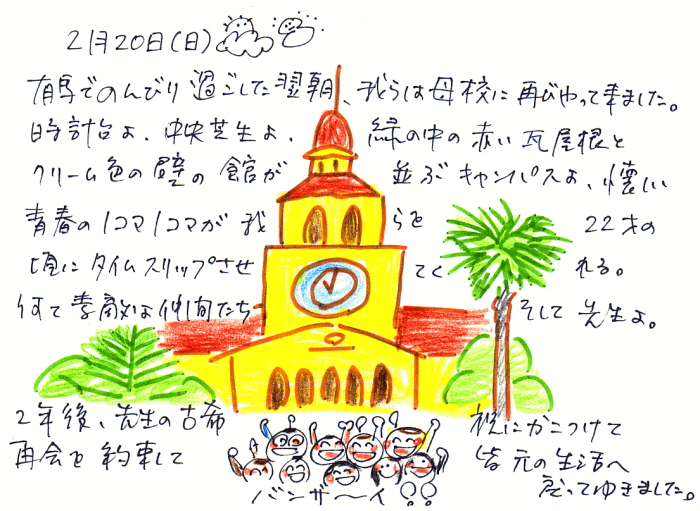 2月20日(日)
有馬でのんびり過ごした翌朝、我らは母校に再びやって来ました。
時計台よ、中央芝生よ、緑の中の赤い瓦屋根と
クリーム色の壁の館が並ぶキャンパスよ、懐しい
青春の1コマ1コマが我らを22才の
頃にタイムスリップさせてくれる。
何て素敵な仲間たちそして先生よ。
2年後、先生の古希祝にかこつけて
再会を約束して皆元の生活へ
戻ってゆきました。
バンザ〜イ!!